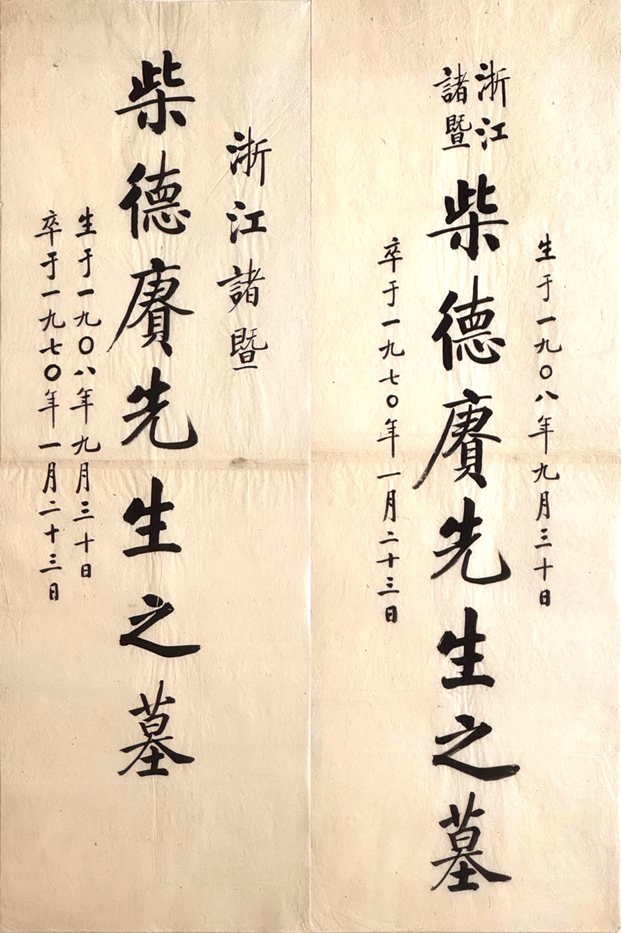 生于一九〇八年九月三十日
浙江
諸暨
柴德賡先生之墓
卒于一九七〇年一月二十三日
浙江諸暨
柴德賡先生之墓
生于一九〇八年九月三十日
卒于一九七〇年一月二十三日